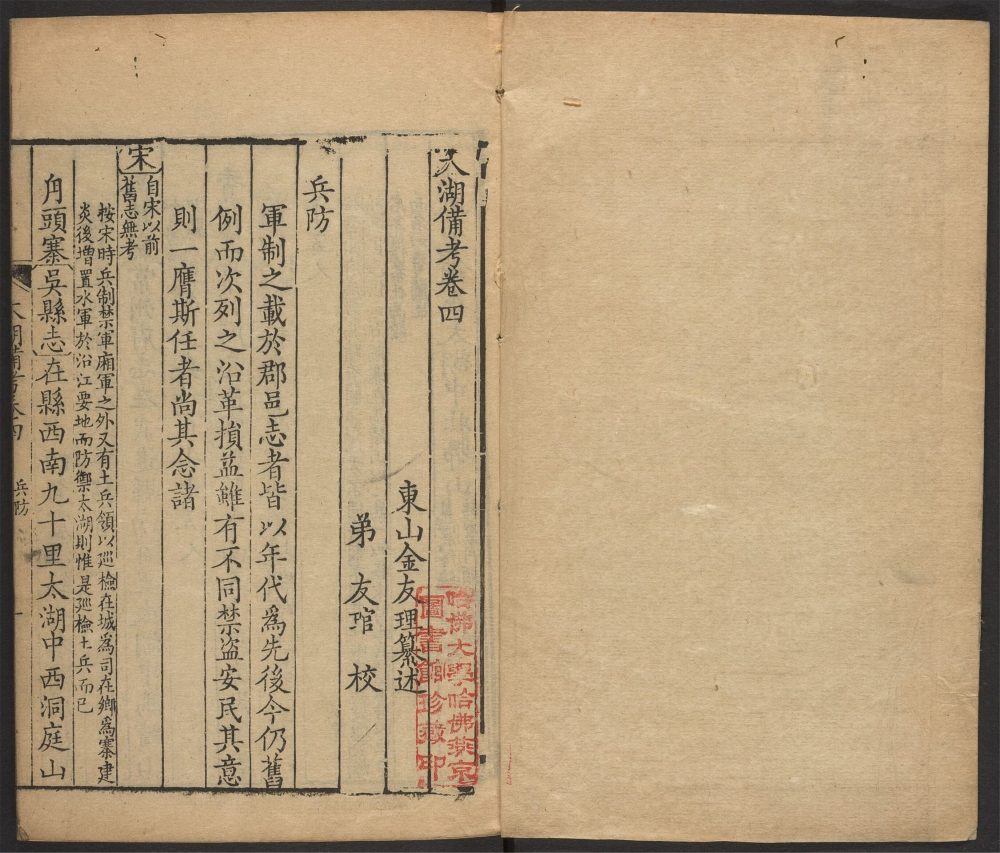 太湖備考卷四
東山金友理纂述
弟友琯校
兵防
軍制之載於郡邑志者皆以年代爲先後今仍舊
例而次列之沿革損益雖有不同禁盜安民其意
則一膺斯任者尚其念諸
宋
自宋以前
舊志無考
按宋時兵制禁軍廂軍之外又有土兵領以廵檢在城爲司在鄉爲寨建
炎後增置水軍於沿江要地而防禦太湖則惟是廵檢土兵而已
甪頭寨吳縣志在縣西南九十里太湖中西洞庭山
太湖備考卷四
兵防
一
哈佛大學哈佛燕京
圖書館珍藏印